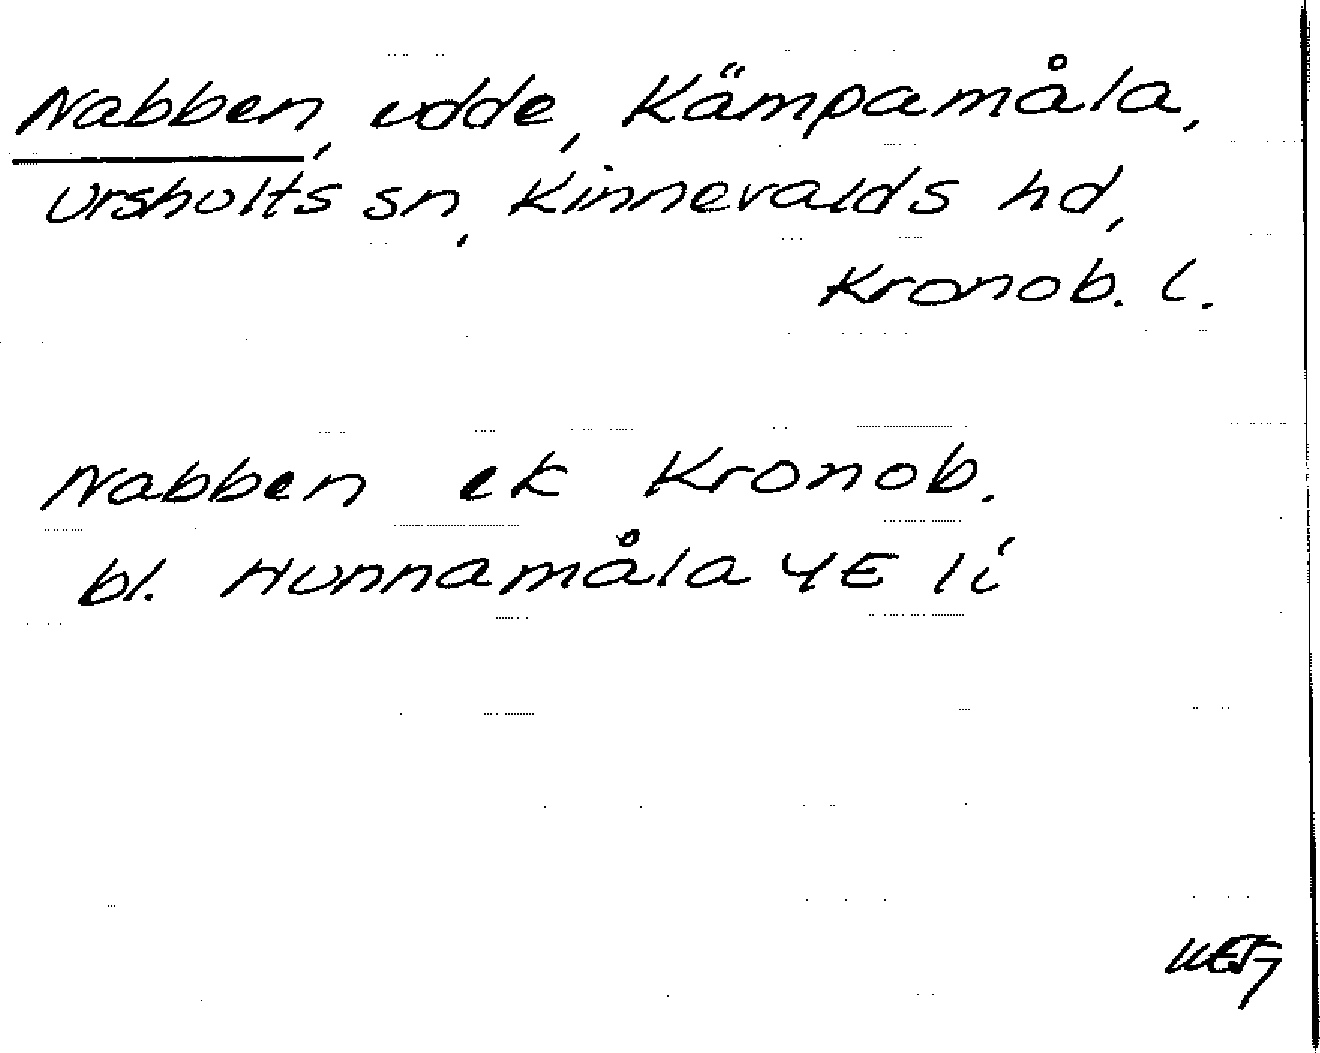 Nabben, udde, Kämpamåla,
Urshults sn, Kinnevalds hd,
Kronob. l.
Nabben ek Kronob.
bl. Hunnamåla 4E li